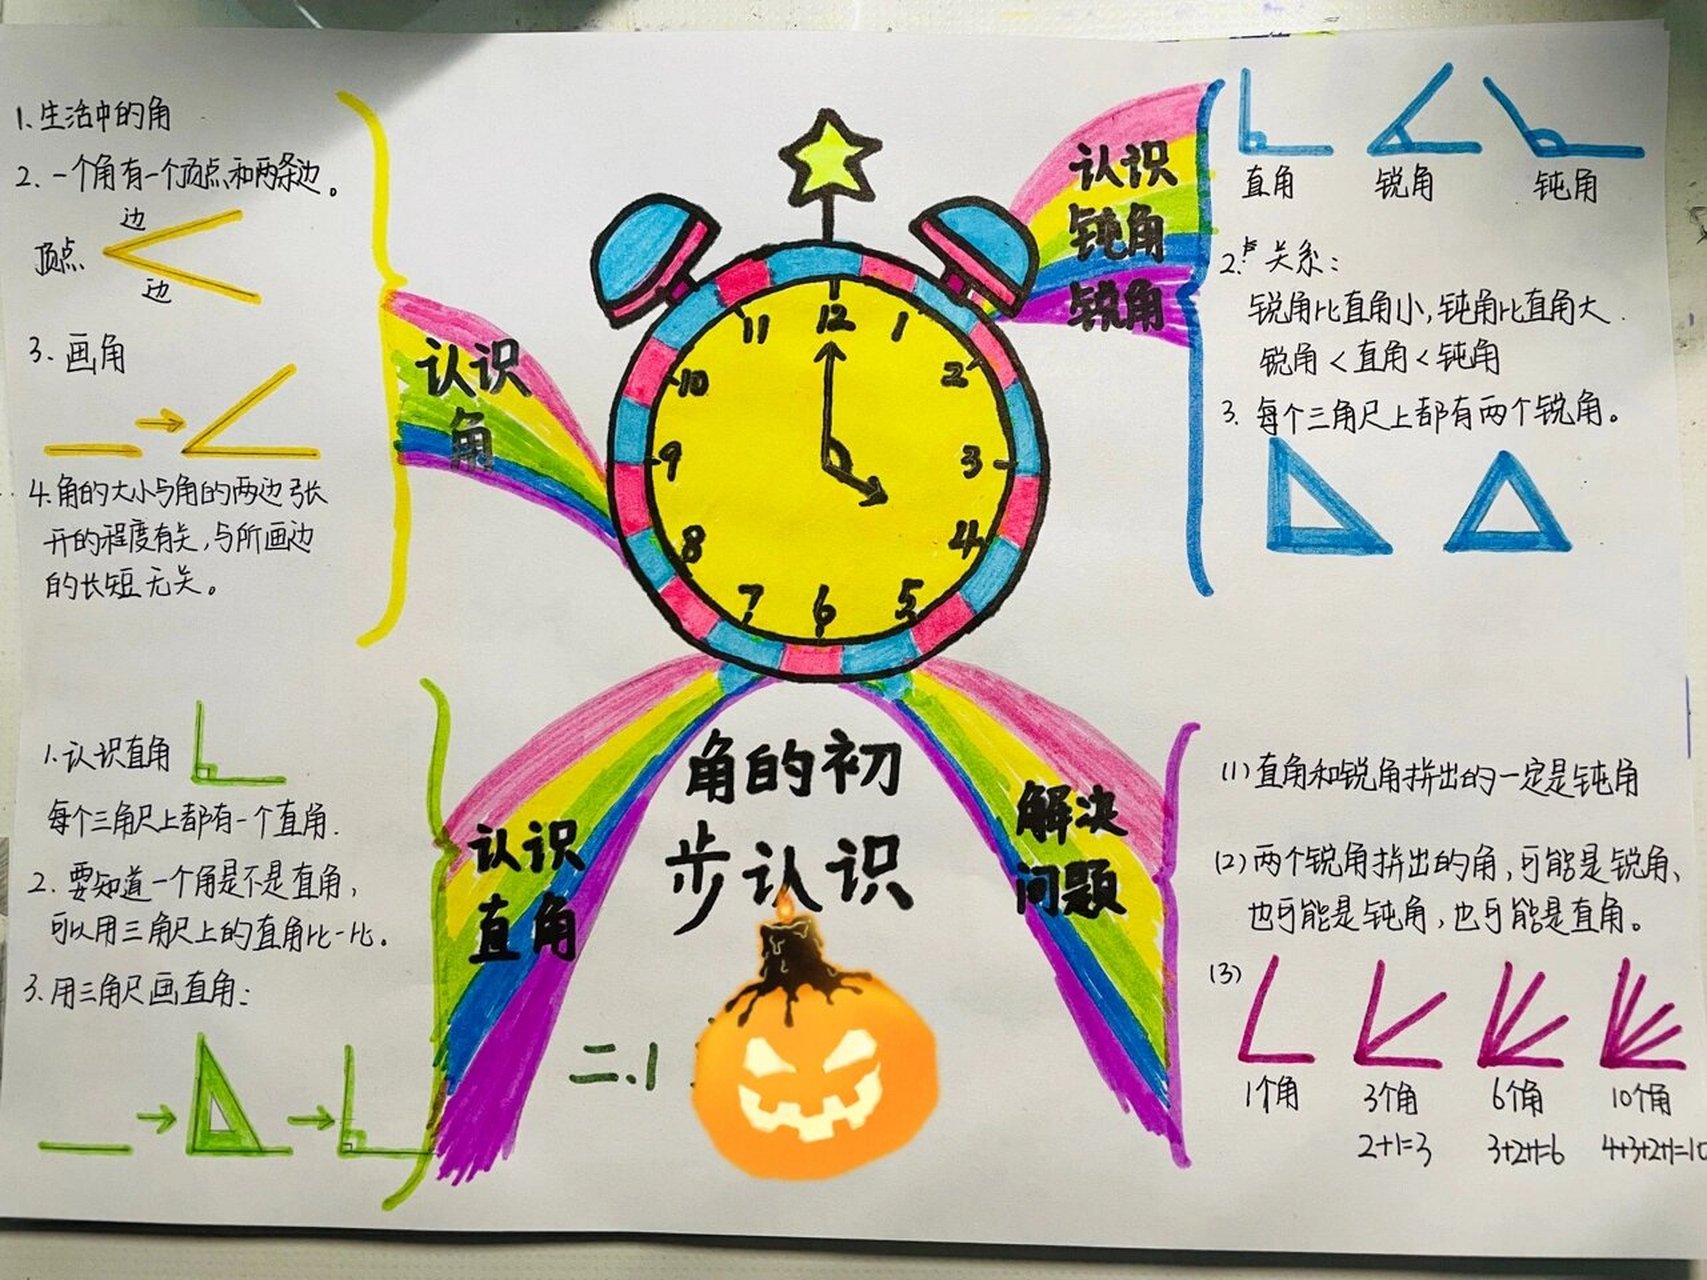 1.生活中的角
2.一个角有一个顶点和两条边。
边
顶点
边
3.画角
4.角的大小与角的两边张
开的程度有关,与所画边
的长短无关。
认识
角
12
1
2
3
4
5
6
7
8
9
10
11
认识
钝角
锐角
直角 锐角 钝角
2. 关系:
锐角比直角小,钝角比直角大.
锐角<直角<钝角
3.每个三角尺上都有两个锐角。
1.认识直角
每个三角尺上都有一个直角.
2.要知道一个角是不是直角,
可以用三角尺上的直角比一比。
3.用三角尺画直角:
认识
直角
角的初
步认识
二.1
解决
问题
(1)直角和锐角拼出的一定是钝角
(2)两个锐角拼出的角,可能是锐角、
也可能是钝角,也可能是直角。
(3)
1个角 3个角 6个角 10个角
2+1=3 3+2+1=6 4+3+2+1=10